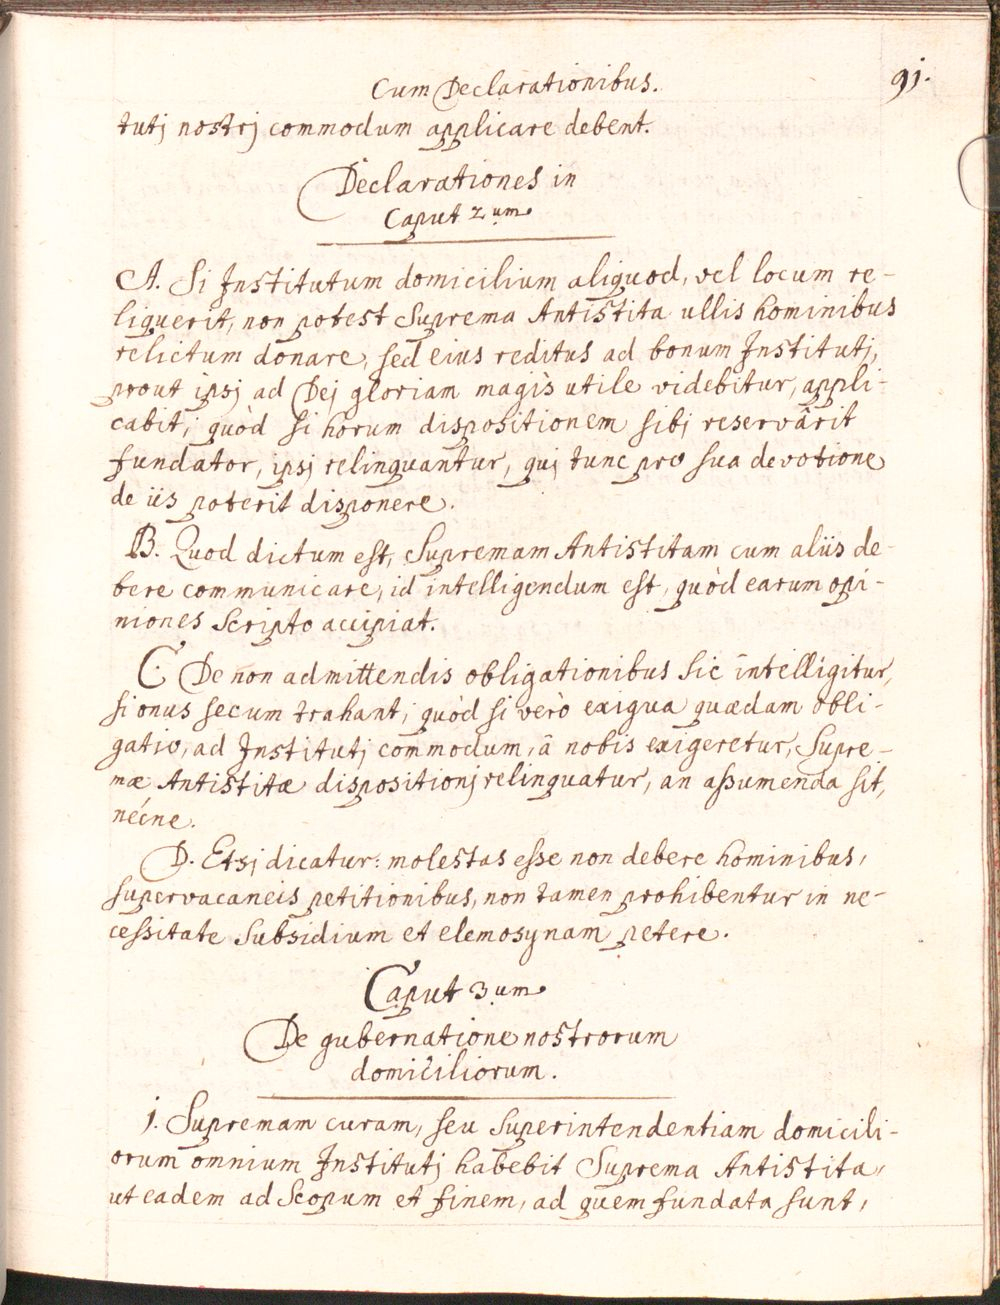 Cum Declarationibus.
91.
tutj nostrj commodum applicare debent.
Declarationes in
Caput 2um.
A. Si Institutum domicilium aliquod, vel locum re-
liquerit, non potest Suprema Antistita ullis hominibus
relictum donare, sed eius reditus ad bonum Institutj,
prout ipsj ad Dej gloriam magis utile videbitur, appli-
cabit; quòd si horum dispositionem sibj reservârit
fundator, ipsj relinquantur, quj tunc pro sua devotione
de iis poterit disponere.
B. Quod dictum est, Supremam Antistitam cum aliis de-
bere communicare, id intelligendum est, quòd earum opi-
niones scripto accipiat.
C. De non admittendis obligationibus sic intelligitur,
si onus secum trahant; quòd si verò exigua quædam obli-
gatio, ad Institutj commodum, â nobis exigeretur, Supre-
mæ Antistitæ dispositionj relinquatur, an assumenda sit,
nécne.
D. Etsj dicatur: molestas esse non debere hominibus,
supervacaneis petitionibus, non tamen prohibentur in ne-
cessitate subsidium et elemosynam petere.
Caput 3um.
De gubernatione nostrorum
domiciliorum.
j. Supremam curam, seu superintendentiam domicili-
orum omnium Institutj habebit Suprema Antistita,
ut eadem ad scopum et finem, ad quem fundata sunt,